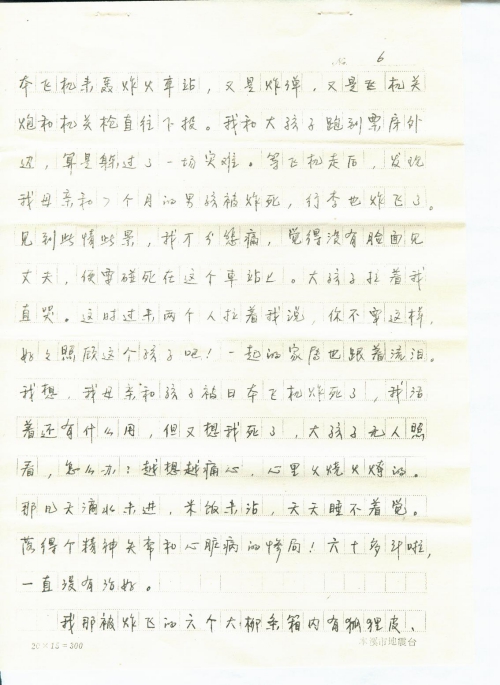 No 6
本飞机来轰炸火车站，又是炸弹，又是飞机关
炮和机关枪直往下投。我和大孩子跑到票房外
边，算是躲过了一场灾难。等飞机走后，发现
我母亲和7个月的男孩被炸死，行李也炸飞了。
见到此情此景，我不分悲痛，觉得没有脸面见
丈夫，便要碰死在这个车站上。大孩子拉着我
直哭。这时过来两个人拉着我说，你不要这样，
好好照顾这个孩子吧！一起的家属也跟着流泪。
我想，我母亲和孩子被日本飞机炸死了，我活
着还有什么用，但又想我死了，大孩子无人照
看，怎么办？越想越痛心，心里火烧火燎的。
那几天滴水未进，米饭未沾，天天睡不着觉。
落得个精神失常和心脏病的惨局！六十多年啦，
一直没有治好。
我那被炸飞的六个大柳条箱内有狐狸皮、
20×15=300
本溪市地震台